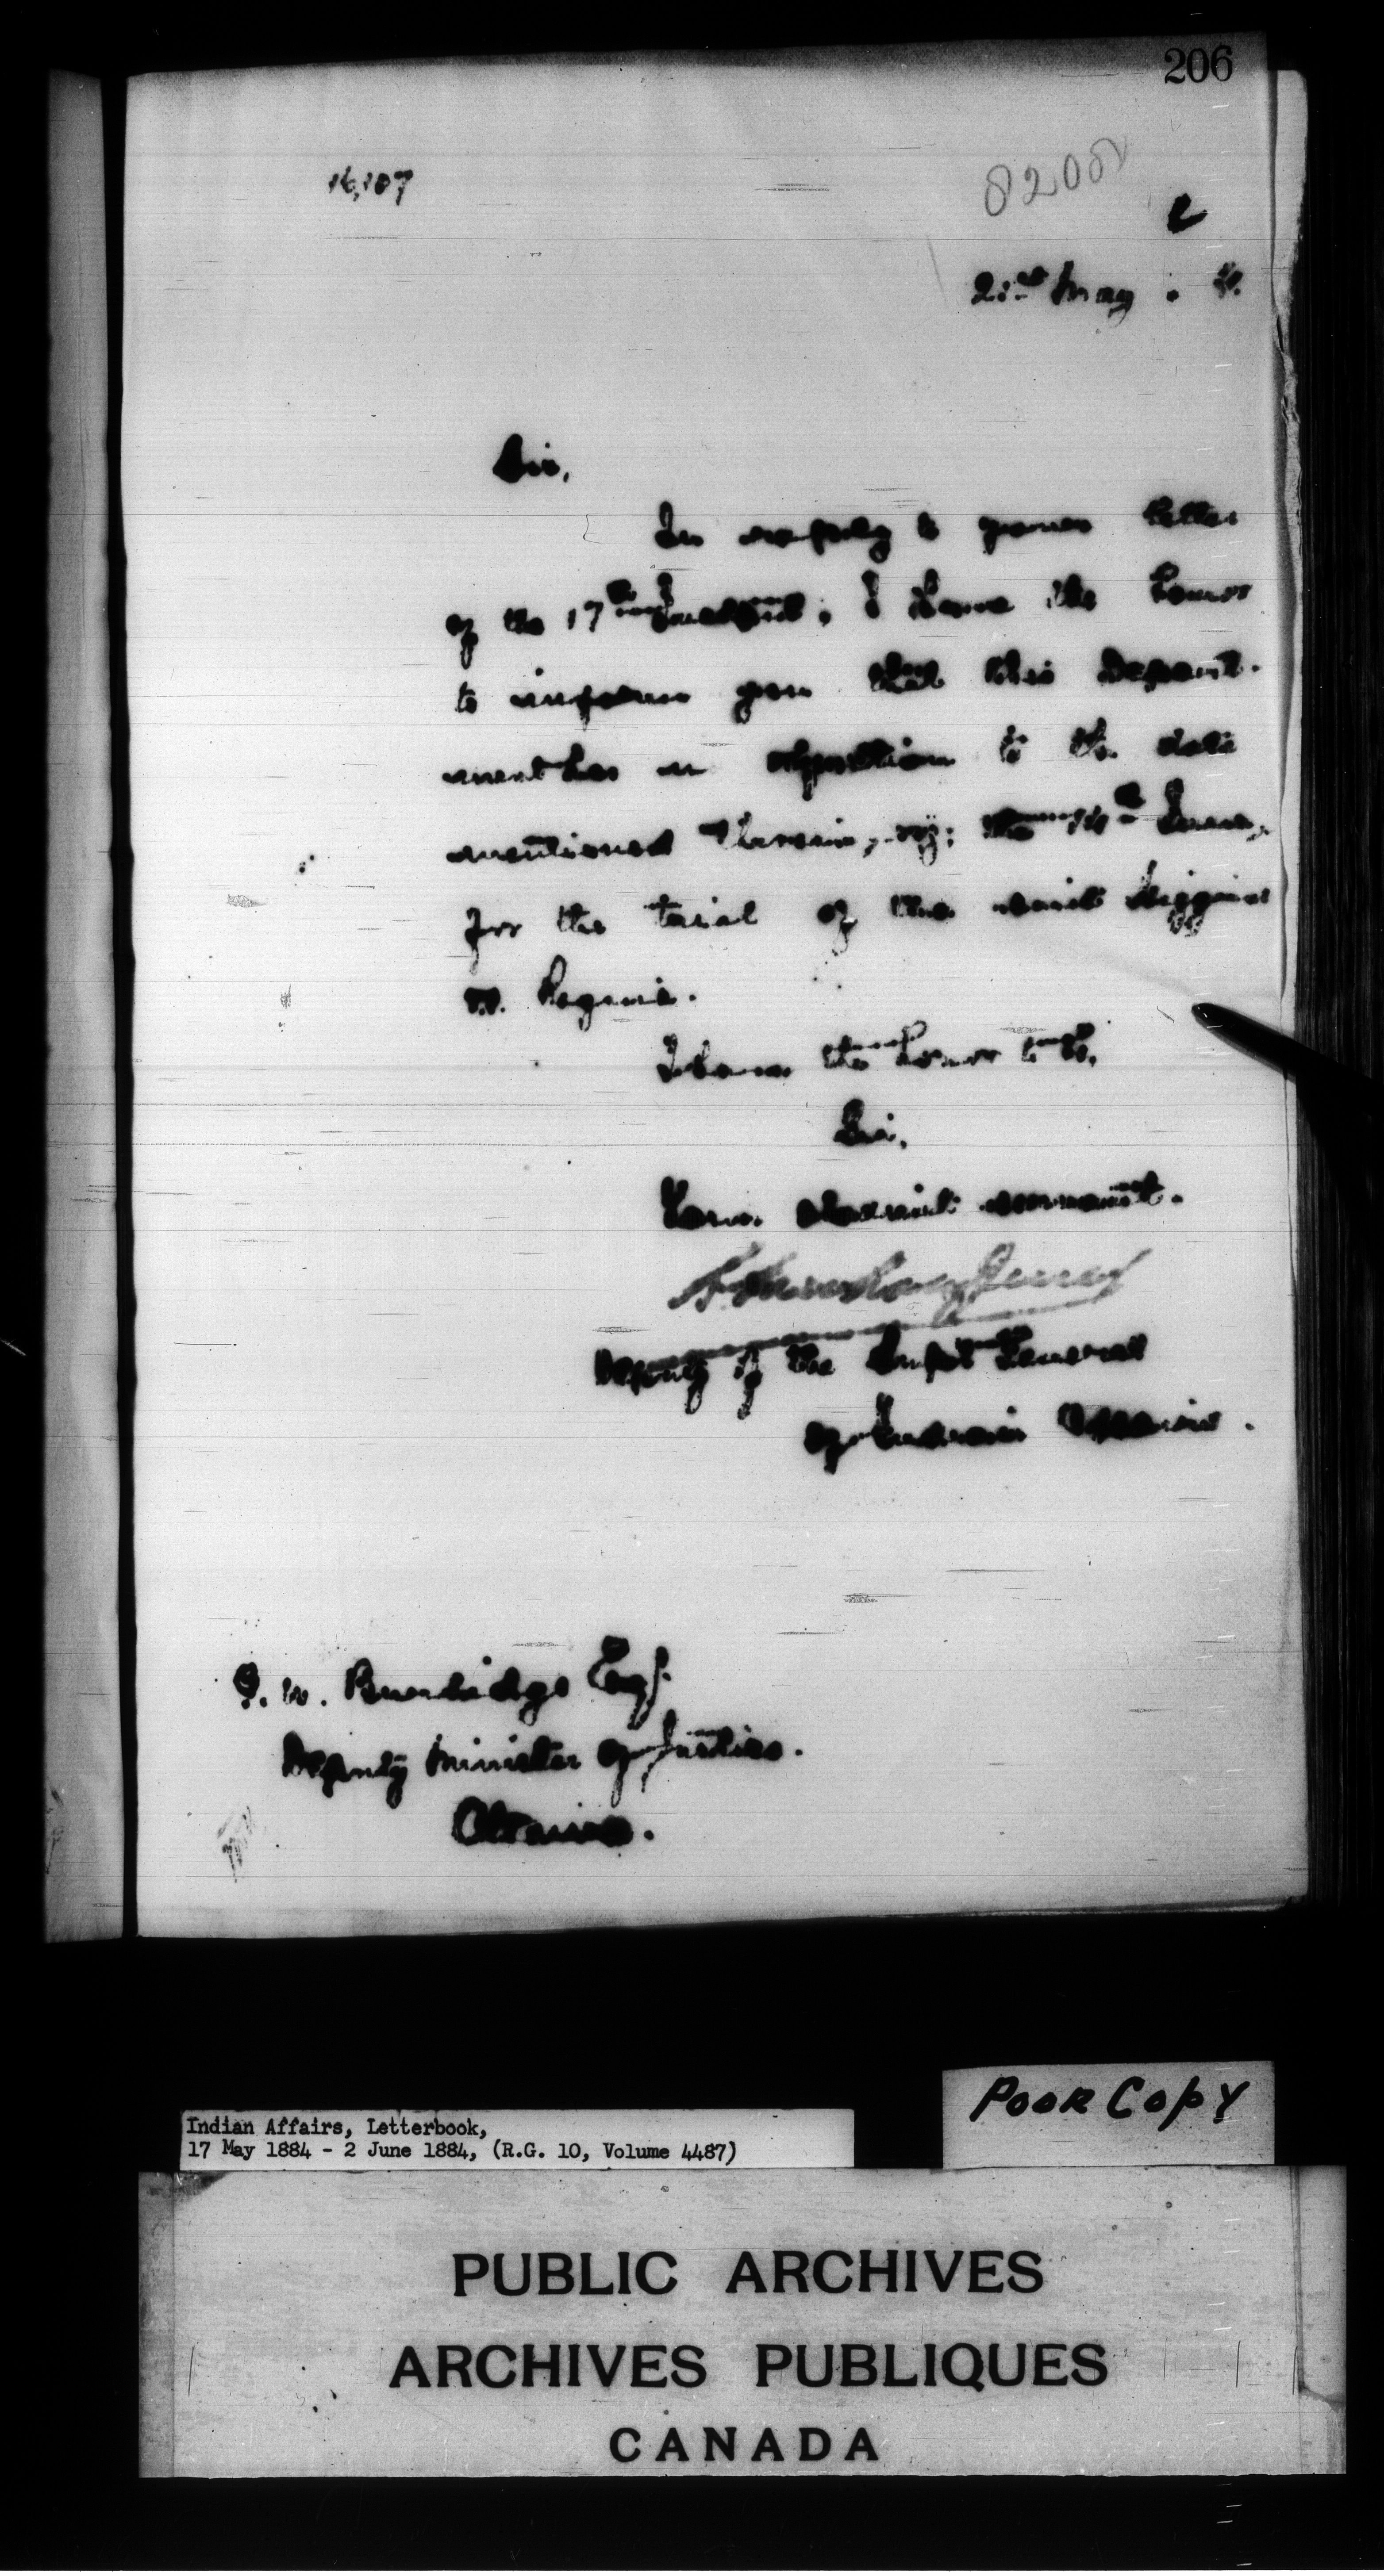 206
16,107
21st May
Sir,
In reply to your letter
of the 17th Instant, I have the honor
to inform you that this Depart-
ment has no objection to the date
mentioned therein, viz: the
for the trial of the suit Higgins
vs. Regina.
I have the honor to be,
Sir,
Your obedient servant.
Deputy of the Supt General
of Indian Affairs.
G. W. Burbidge Esq.
Deputy Minister of Justice.
Ottawa.
Poor Copy
Indian Affairs, Letterbook,
17 May 1884 - 2 June 1884, (R.G. 10, Volume 4487)
PUBLIC ARCHIVES
ARCHIVES PUBLIQUES
CANADA